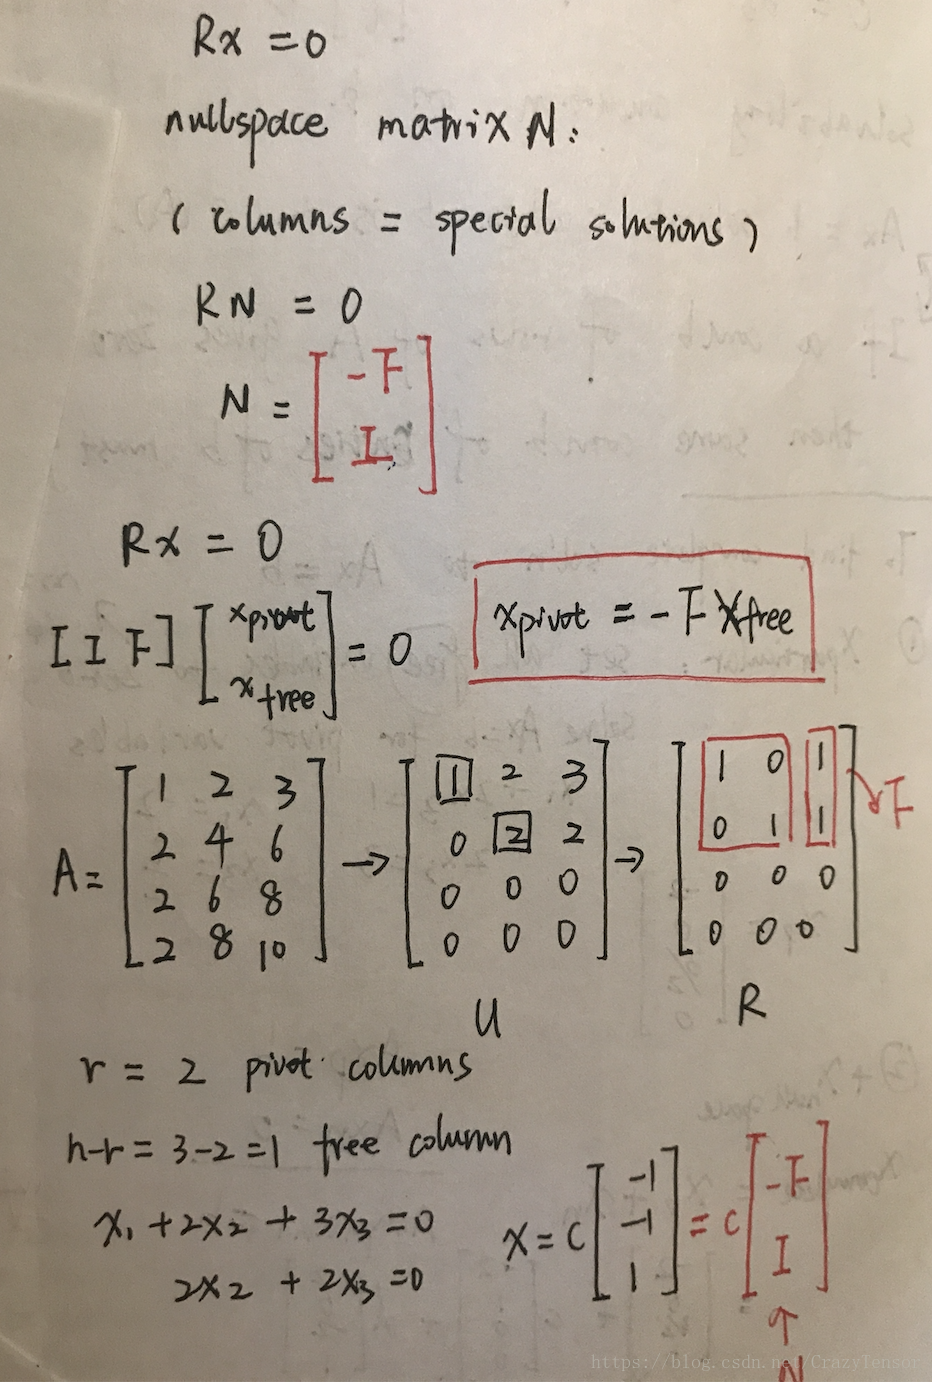 Rx = 0
nullspace matrix N:
( columns = special solutions )
RN = 0
N = [ -F
I ]
Rx = 0
[ I F ] [ xpivot
xfree ] = 0
xpivot = -F xfree
A = [ 1 2 3
2 4 6
2 6 8
2 8 10 ]
→ [ 1 2 3
0 2 2
0 0 0
0 0 0 ]
U
→ [ 1 0 1
0 1 1
0 0 0
0 0 0 ]
F
R
r = 2 pivot columns
n-r = 3-2 = 1 free column
x₁ + 2x₂ + 3x₃ = 0
2x₂ + 2x₃ = 0
x = c [ -1
-1
1 ] = c [ -F
I ]
↑
N
https://blog.csdn.net/CrazyTensor